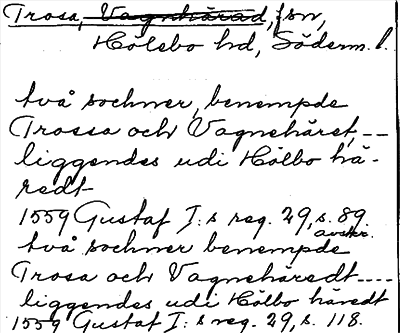 Trosa, Vagnhärad, sn,
Hölebo hd, Söderm. l.
två sochner, benempde
Trossa och Vagnehäret, --
liggendes udi Hölbo hä-
redt
1559 Gustaf I:s reg. 29, s. 89.
avskr.
två sochner benempde
Trosa och Vagnehäredt ----
liggendes udi Hölbo häredt
1559 Gustaf I:s reg. 29, s. 118.